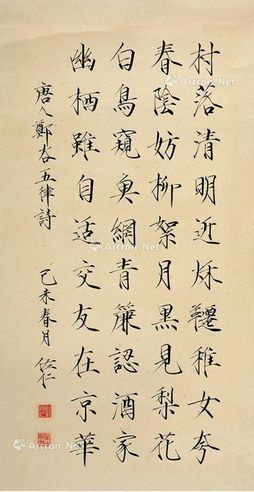 村落清明近秌韆稚女夸
春陰妨柳絮月黑見梨花
白鳥窺魚網青簾認酒家
幽栖雖自适交友在京華
唐人鄭谷五律詩 己未春月
Artron.Net
Artron.Net
Artron.Net
Artron.Net